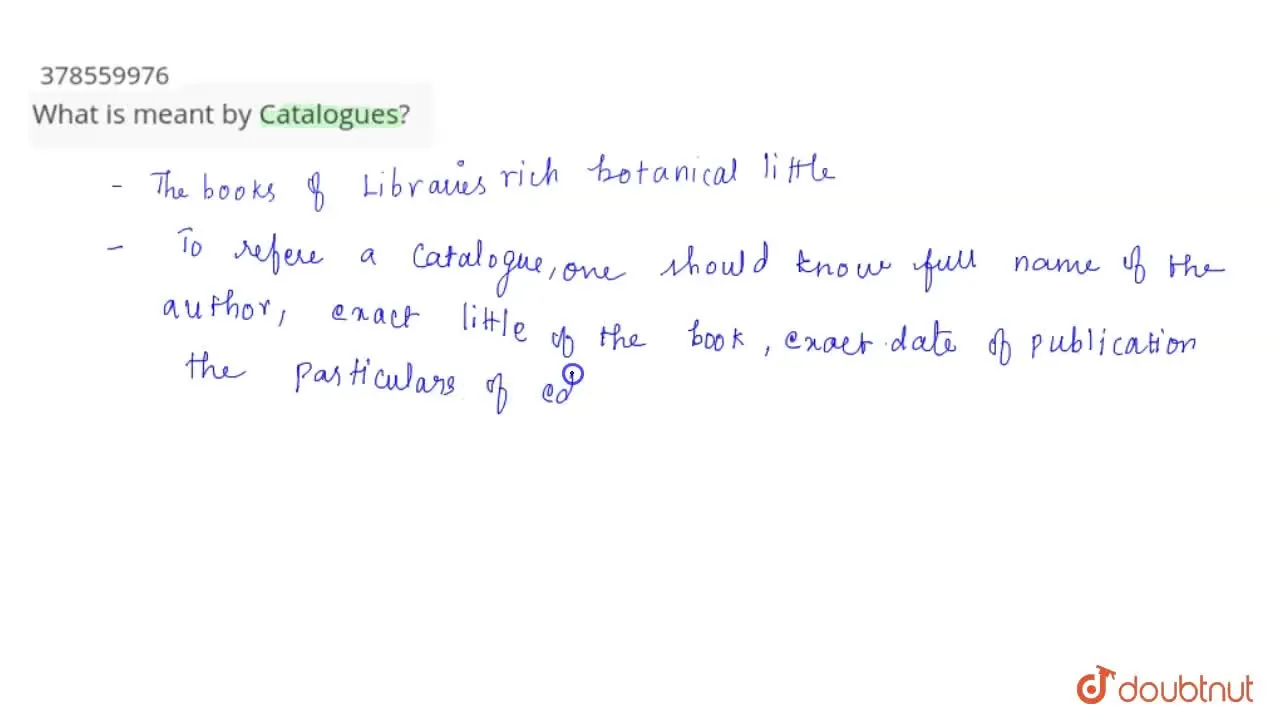 378559976
What is meant by Catalogues?
- The books of Libraries rich botanical little
- To refere a catalogue, one should know full name of the
author, exact little of the book, exact date of publication
the particulars of ed
doubtnut